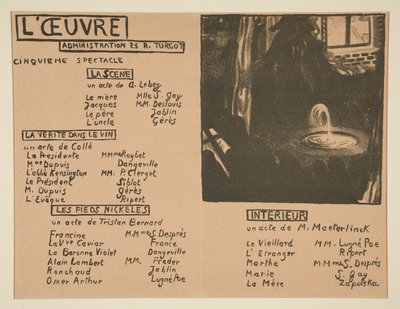 L'ŒUVRE
ADMINISTRATION 23 R. TURGOT
CINQUIEME SPECTACLE
LA SCENE
un acte de A. Lebey
Le mère Mlle S. Gay
Jacques MM. Deslouis
Le père Jablin
L'uncle Gérès
LA VERITE DANS LE VIN
un acte de Collé
La Presidente MMme Roybet
Mme Dupuis Dangeville
L'abbé Kensington MM. P. Clergot
Le Président Siblot
M. Dupuis Gérès
L'Evêque Ripert
LES PIEDS NICKELÉS
un acte de Tristan Bernard
Francine MMmes Desprès
La Vve Caviar France
La Baronne Violet Dangeville
Alain Lambert MM. Frèder
Ronchaud Jablin
Omer Arthur Lugné Poe
INTERIEUR
un acte de M. Maeterlinck
Le Vieillard MM. Lugné Poe
L'Etranger Ripert
Marthe MMmes S. Desprès
Marie S. Gay
La Mère Zapolska